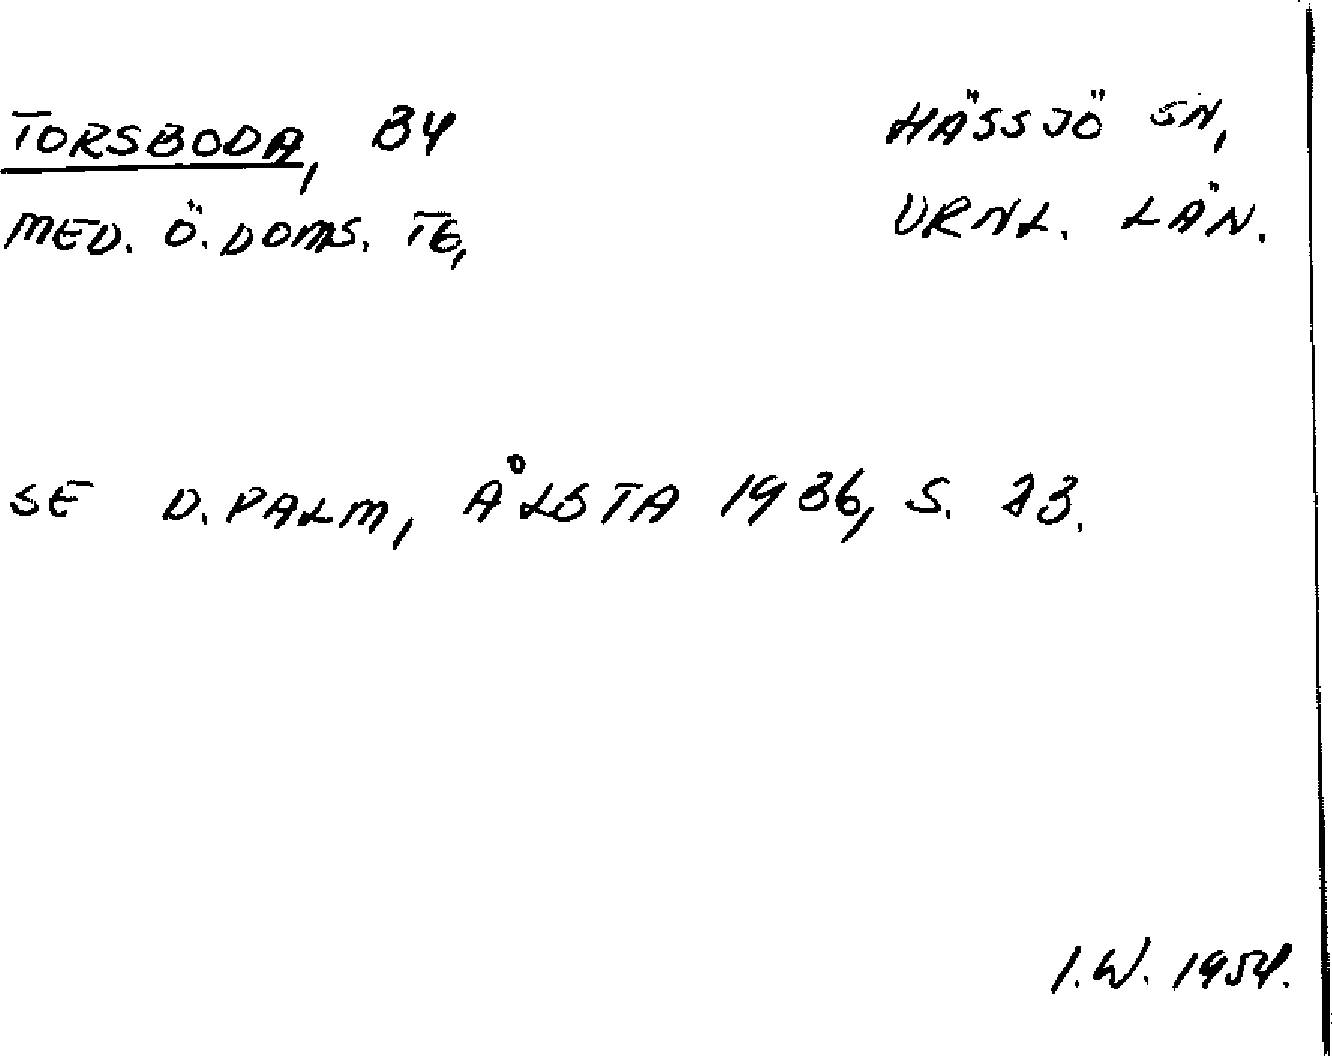 TORSBODA, BY
HÄSSJÖ SN,
MED. Ö. DOMS. TG,
VRNL. LÄN.
SE D. PALM, ÅLSTA 1936, S. 23.
I.W. 1954.